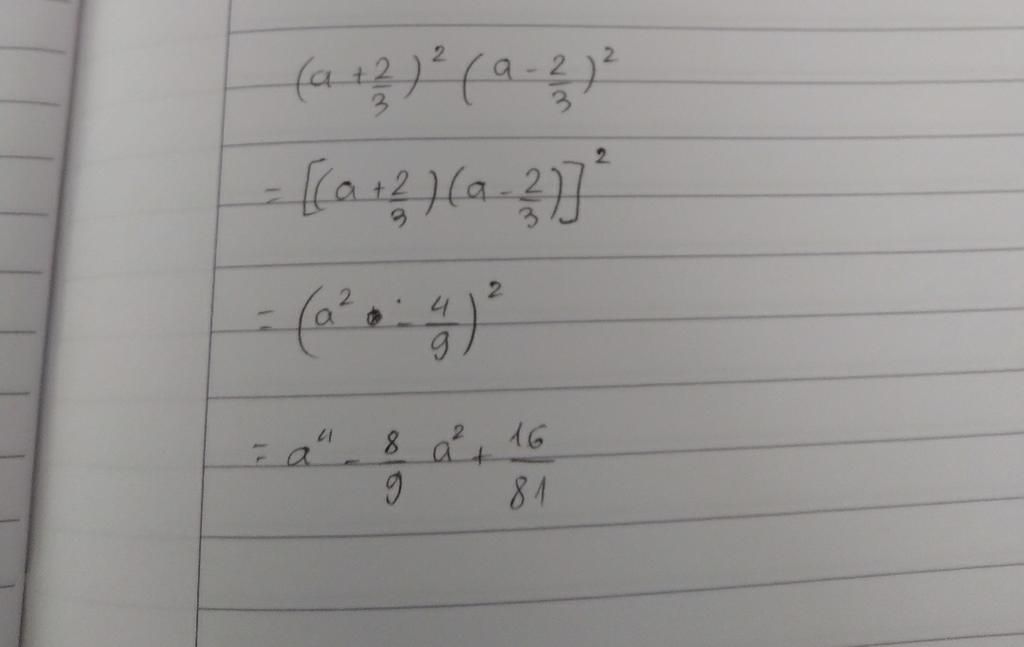 (a + 2/3)² (a - 2/3)²
= [(a + 2/3)(a - 2/3)]²
= (a² - 4/9)²
= a⁴ - 8/9 a² + 16/81